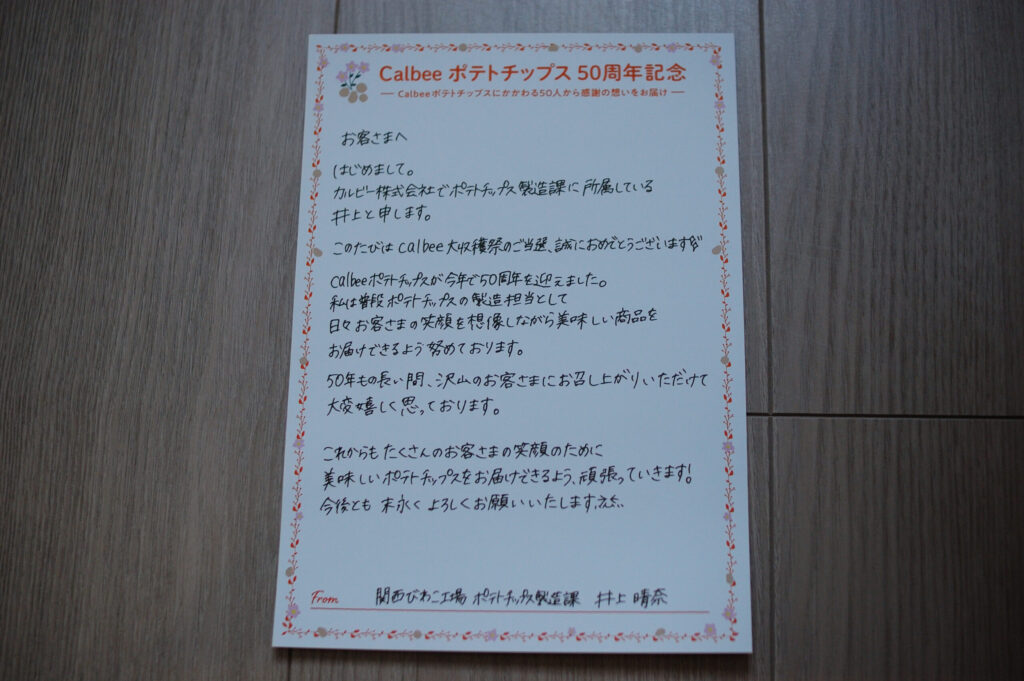 Calbee ポテトチップス 50周年記念
Calbeeポテトチップスにかかわる50人から感謝の想いをお届け
お客さまへ
はじめまして。
カルビー株式会社でポテトチップス製造課に所属している
井上と申します。
このたびは Calbee大収穫祭のご当選、誠におめでとうございます
Calbeeポテトチップスが今年で50周年を迎えました。
私は普段ポテトチップスの製造担当として
日々お客さまの笑顔を想像しながら美味しい商品を
お届けできるよう努めております。
50年もの長い間、沢山のお客さまにお召し上がりいただけて
大変嬉しく思っております。
これからもたくさんのお客さまの笑顔のために
美味しいポテトチップスをお届けできるよう、頑張っていきます!
今後とも 末永く よろしくお願いいたします
From 関西びわこ工場 ポテトチップス製造課 井上 晴奈